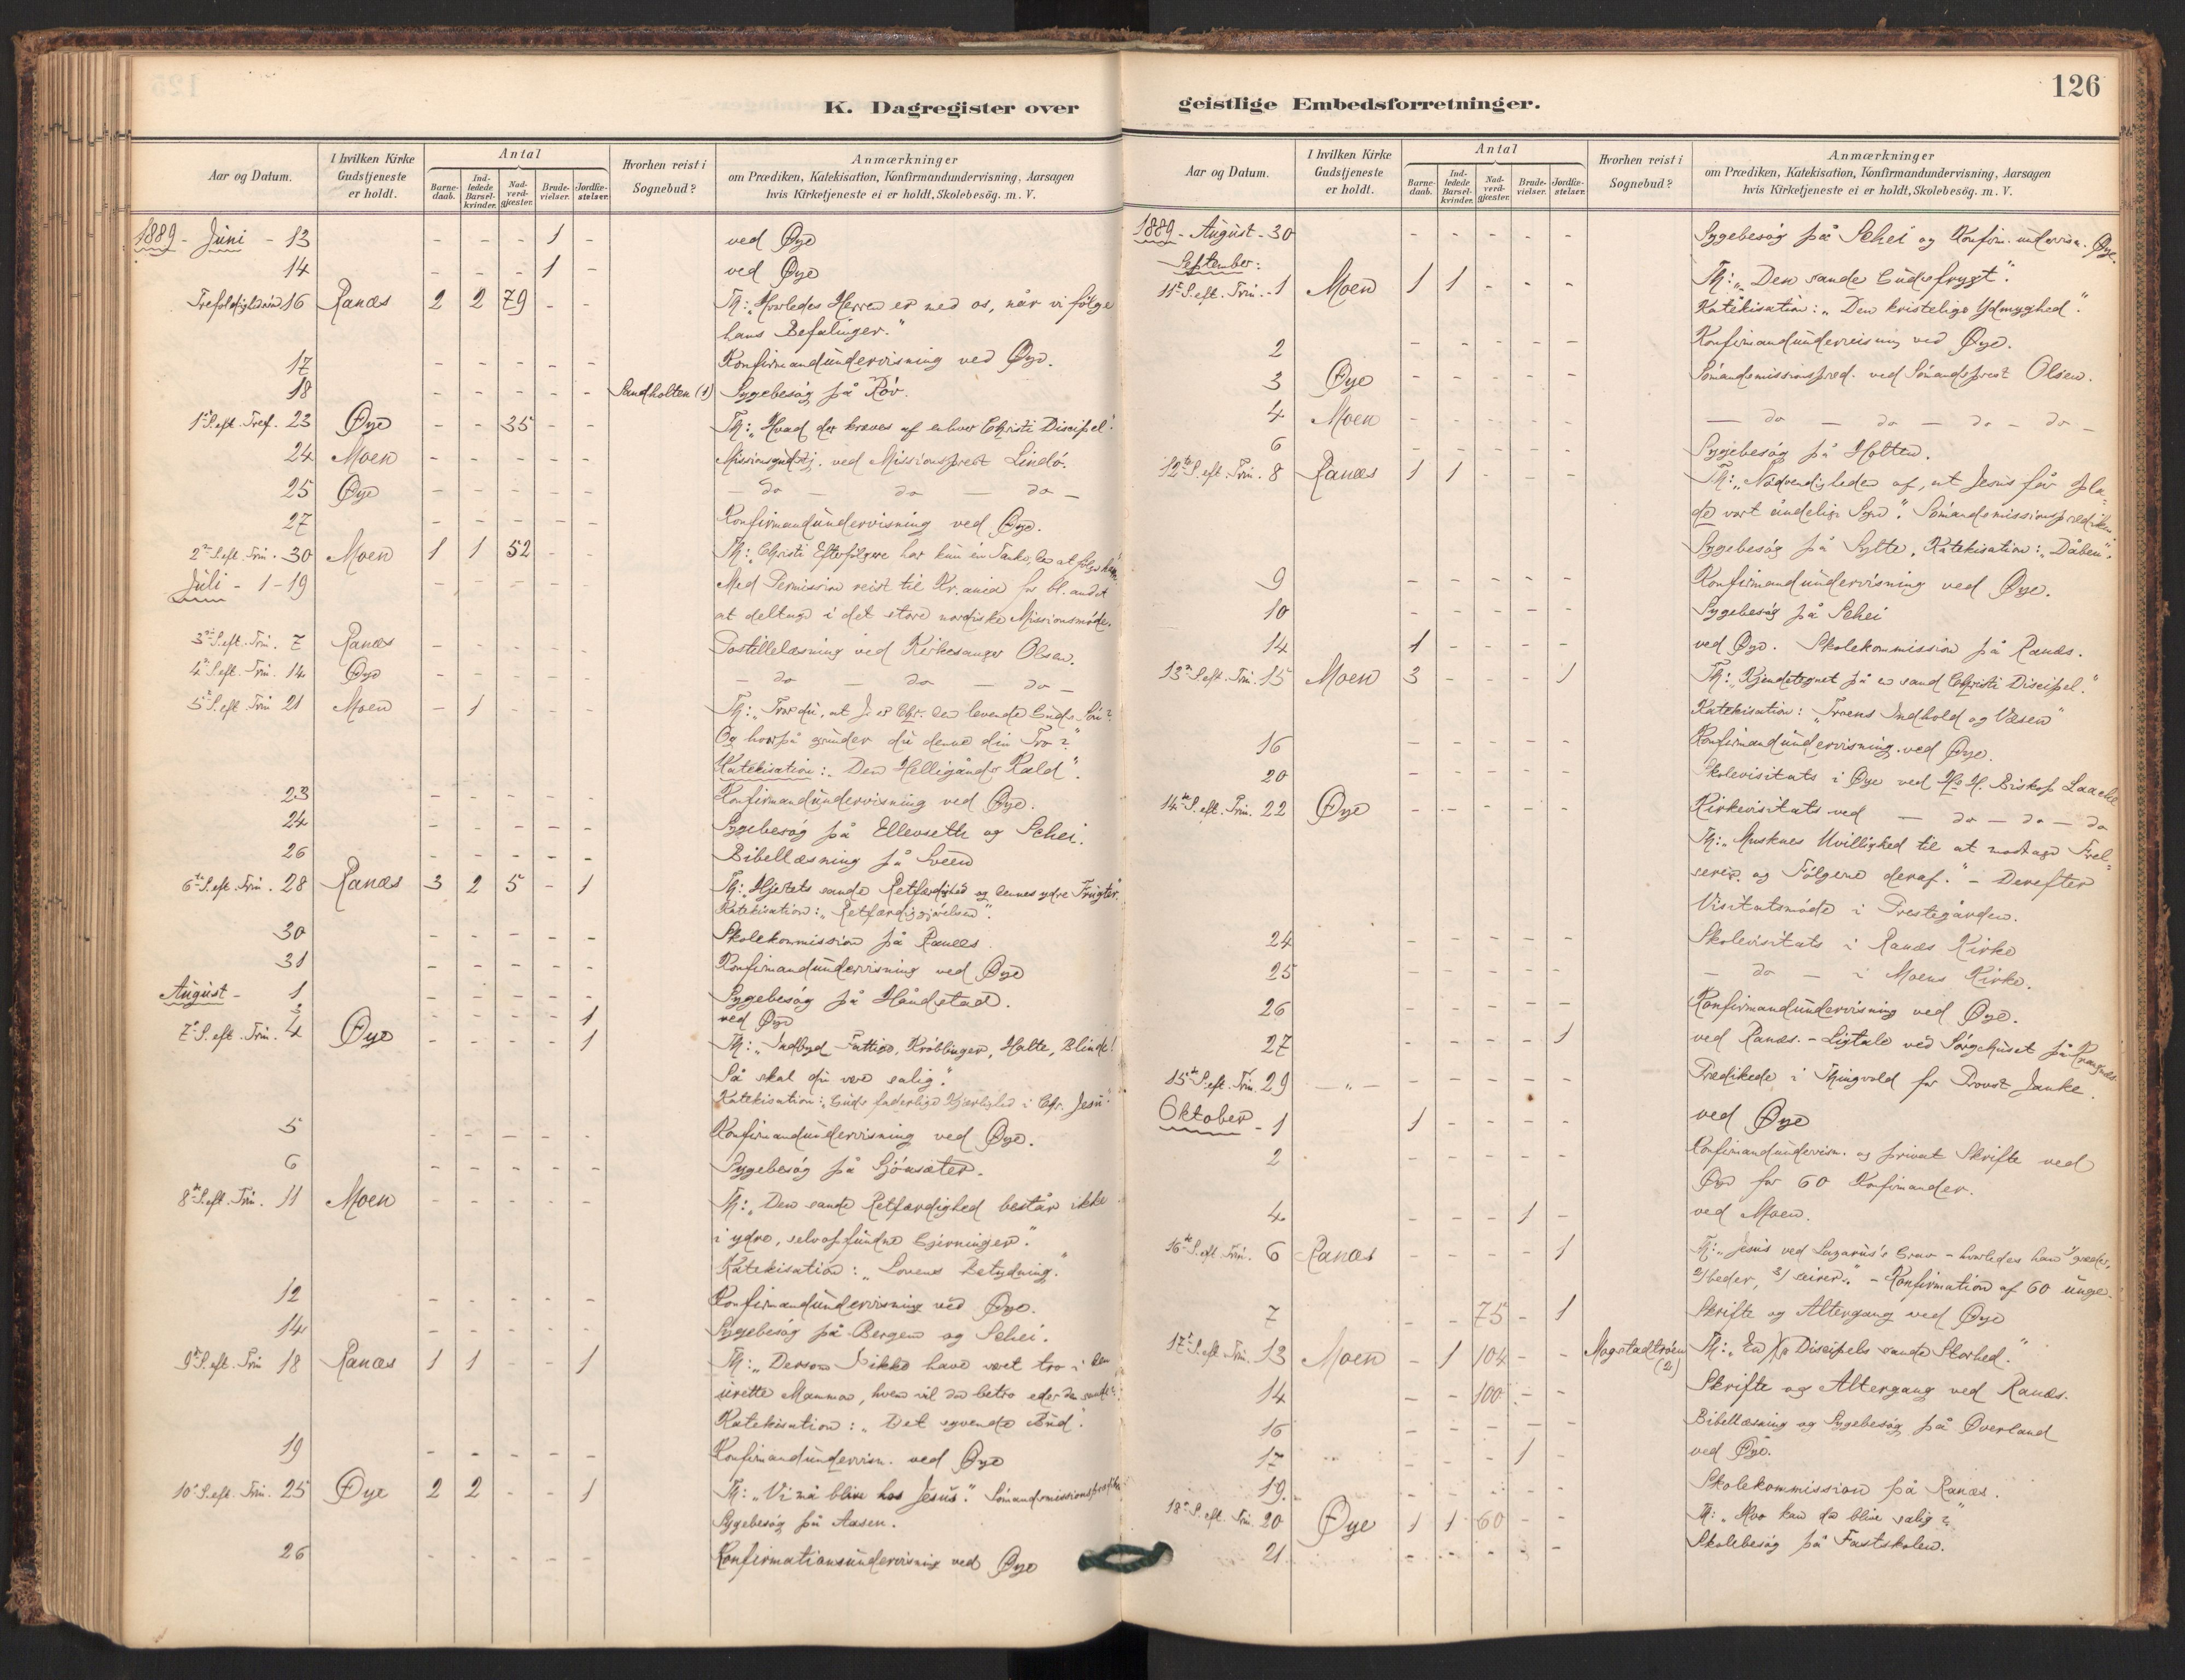 126
K. Dagregister over
Aar og Datum.
I hvilken Kirke Gudstjeneste er holdt.
Antal
Barne-daab.
Ind-ledede Barsel-kvinder.
Nad-verd-gjæster.
Brude-vielser.
Jordfæ-stelser.
Hvorhen reist i Sognebud?
Anmærkninger
om Prædiken, Katekisation, Konfirmandundervisning, Aarsagen
hvis Kirketjeneste ei er holdt, Skolebesög. m. V.
1889 - Juni - 13 - - - 1 - ved Øye
14 - - - 1 - ved Øye
Trefoldighed 16 Ranæs 2 2 79 - - Th: „Hvorledes Herren er med os, når vi følge
hans Befalinger."
17 - - - - - Konfirmandundervisning ved Øye.
18 - - - - - Sandholten (1) Sygebesøg på Rør.
1ste S. eft. Tref. 23 Øye - - 35 - - Th: „Hvad der kræves af enhver Christi Discipel."
24 Moen - - - - - Missionsgudstj. ved Missionsprest Lindø.
25 Øye - - - - - - do - do - do -
27 - - - - - Konfirmandundervisning ved Øye.
2den S. eft. Trin. 30 Moen 1 1 52 - - Th: „Christi Efterfølgere har kun én Tanke, den at følge ham."
Juli - 1-19 - - - - - Med Permission reist til Kr.ania for bl. andet
at deltage i det store nordiske Missionsmøde.
3die S. eft. Trin. 7 Ranæs - - - - - Postillelæsning ved Kirkesanger Olsen.
4de S. eft. Trin. 14 Øye - - - - - - do - do - do -
5te S. eft. Trin 21 Moen - 1 - - - Th: „Tror du, at J. er Chr. den levende Guds Søn?
Og hvorpå grunder du denne din Tro?"
Katekisation: „Den Helligånds Kald".
23 - - - - - Konfirmandundervisning ved Øye.
24 - - - - - Sygebesøg på Ellevseth og Schei.
26 - - - - - Bibellæsning på Sveen
6te S. eft. Trin. 28 Ranæs 3 2 5 - 1 Th: „Hjertets sande Retfærdighed og dennes ydre Frugter."
Katekisation: „Retfærdiggjørelsen".
30 - - - - - Skolekommission på Ranæs.
31 - - - - - Konfirmandundervisning ved Øye
August - 1 - - - - - Sygebesøg på Håndstad.
3 - - - - 1 ved Øye
7de S. eft. Trin. 4 Øye - - - - 1 Th: „Indbyd Fattige, Krøblinger, Halte, Blinde!
Så skal du være salig."
Katekisation: „Guds faderlige Kjærlighed i Chr. Jesu."
5 - - - - - Konfirmandundervisning ved Øye.
6 - - - - - Sygebesøg på Sjønsæter.
8de S. eft. Trin. 11 Moen - - - - - Th: „Den sande Retfærdighed består ikke
i ydre, selvopfundne Gjerninger."
Katekisation: „Lovens Betydning."
12 - - - - - Konfirmandundervisning ved Øye.
14 - - - - - Sygebesøg på Bergem og Schei.
9de S. eft. Trin 18 Ranæs 1 1 - - 1 Th: „Dersom I ikke have været tro i den
urette Mammon, hvem vil da betro eder den sande?"
Katekisation: „Det syvende Bud".
19 - - - - - Konfirmandundervisn. ved Øye
10de S. eft. Trin. 25 Øye 2 2 - - 1 Th: „Vi må blive hos Jesus." Sømandsmissionsprediken
Sygebesøg på Aasen.
26 - - - - - Konfirmationsundervisning ved Øye
geistlige Embedsforretninger.
Aar og Datum.
I hvilken Kirke Gudstjeneste er holdt.
Antal
Barne-daab.
Ind-ledede Barsel-kvinder.
Nad-verd-gjæster.
Brude-vielser.
Jordfæ-stelser.
Hvorhen reist i Sognebud?
Anmærkninger
om Prædiken, Katekisation, Konfirmandundervisning, Aarsagen
hvis Kirketjeneste ei er holdt, Skolebesög. m. V.
1889 - August - 30 - - - - - Sygebesøg på Schei og Konfirm. undervisn. Øye.
September:
11te S. eft. Trin. - 1 Moen 1 1 - - - Th: „Den sande Gudsfrygt".
Katekisation: „Den kristelige Ydmyghed".
2 - - - - - Konfirmandundervisning ved Øye.
3 Øye - - - - - Sømandsmissionspred. ved Sømandsprest Olsen.
4 Moen - - - - - - do - do - do - do -
6 - - - - - Sygebesøg på Holten.
12te S. eft. Trin. 8 Ranæs 1 1 - - - Th: „Nødvendigheden af, at Jesus får
vort åndelige Syn". Sømandsmissionsprediken
Sygebesøg på Sylte. Katekisation: „Dåben".
9 - - - - - Konfirmandundervisning ved Øye.
10 - - - - - Sygebesøg på Schei
14 1 - - - - ved Øye. Skolekommission på Ranæs.
13de S. eft. Trin. 15 Moen 3 - - - 1 Th: „Kjendetegnet på en sand Christi Discipel."
Katekisation: „Troens Indhold og Væsen"
16 - - - - - Konfirmandundervisning ved Øye.
20 - - - - - Skolevisitats i Øye ved Hr. H. Biskop Laache
14de S. eft. Trin. 22 Øye - - - - - Kirkevisitats ved - do - do - do
Th: „Mensknes Uvillighed til at modtage Frel-
seren og Følgerne deraf." - Derefter
Visitatsmøde i Prestegården.
24 - - - - - Skolevisitats i Ranæs Kirke
25 - - - - - - do - i Moens Kirke.
26 - - - - - Konfirmandundervisning ved Øye.
27 - - - - 1 ved Ranæs. - Ligtale ved Sørgehuset på
15de S. eft. Trin. 29 - „ - - - - - - Prædikede i Thingvold for Provst Janke.
Oktober - 1 1 - - - - ved Øye
2 - - - - - Konfirmandundervisn. og privat Skrifte ved
Øye for 60 Konfirmander.
4 - - - 1 - ved Moen.
16de S. eft. Trin. 6 Ranæs - - - - 1 Th: „Jesus ved Lazarus's Grav - hvorledes han 1/ græder,
2/ beder, 3/ seirer." - Konfirmation af 60 unge.
7 - - 75 - 1 Skrifte og Altergang ved Øye
17de S. eft. Trin. 13 Moen - 1 104 - - Magstadtrøen (2) Th: „En Discipels sande Storhed."
14 - - 100 - - Skrifte og Altergang ved Ranæs.
16 - - - - - Bibellæsning og Sygebesøg på Øverland
17 - - - 1 - ved Øye.
19. - - - - - Skolekommission på Ranæs.
18de S. eft. Trin. 20 Øye 1 1 60 - - Th: „Hvo kan da blive salig?"
21. - - - - - Skolebesøg på Fastskolen.